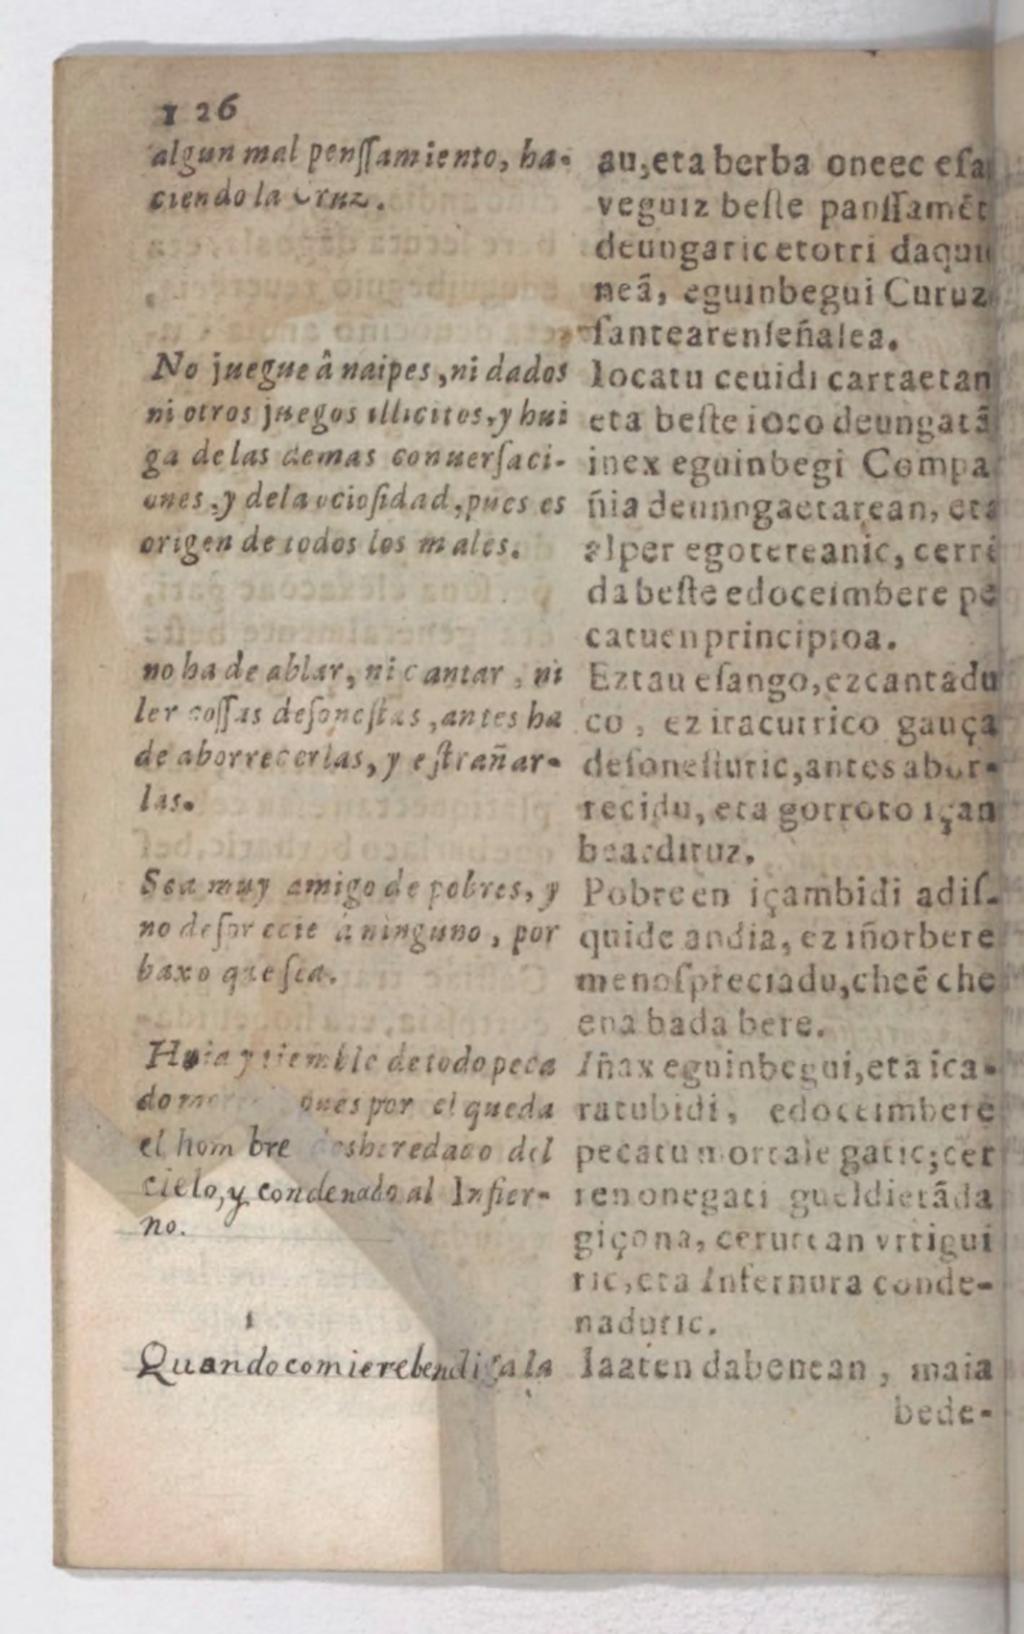 126
algun mal penſſamiento, ha-
ciendo la Cruz.
No juegue â naipes, ni dados
ni otros juegos illicitos, y hui
ga de las demas conuerſaci-
ones, y de la ocioſidad, pues es
origen de todos los males.
no ha de ablar, ni cantar, ni
ler coſſas deſoneſtas, antes ha
de aborrecerlas, y eſtrañar-
las.
Sea muy amigo de pobres, y
no deſprecie à ninguno, por
baxo que ſea.
Huia y tiemble de todo peca
do pues por el queda
el hombre desheredado del
cielo, y condenado al Infier-
no.
1
Quando comiere bendiga la
au, eta berba oneec eſa
veguiz beſte panſſamēt
deungaric etorri daqui
neã, eguinbegui Curuz
ſantearen ſeñalea.
Iocatu ceuidi cartaetan
eta beſte ioco deungatã
inex eguinbegi Compa
ñia deunngaetarean, eta
alper egotereanic, cerre
da beſte edoceimbere pe
catuen principioa.
Eztau eſango, ez cantadu
co, ez iracurrico gauça
deſoneſturic, antes abor-
recidu, eta gorroto içan
beardituz.
Pobreen içambidi adiſ-
quide andia, ez iñorbere
menoſpreciadu, cheē che
ena bada bere.
Iñax eguinbegui, eta ica-
ratubidi, edoceimbere
pecatu mortale gatic; cer
ren onegati gueldietãda
giçona, ceruetan vrtigui
ric, eta Infernura conde-
naduric.
Iaaten dabenean, maia
bede-